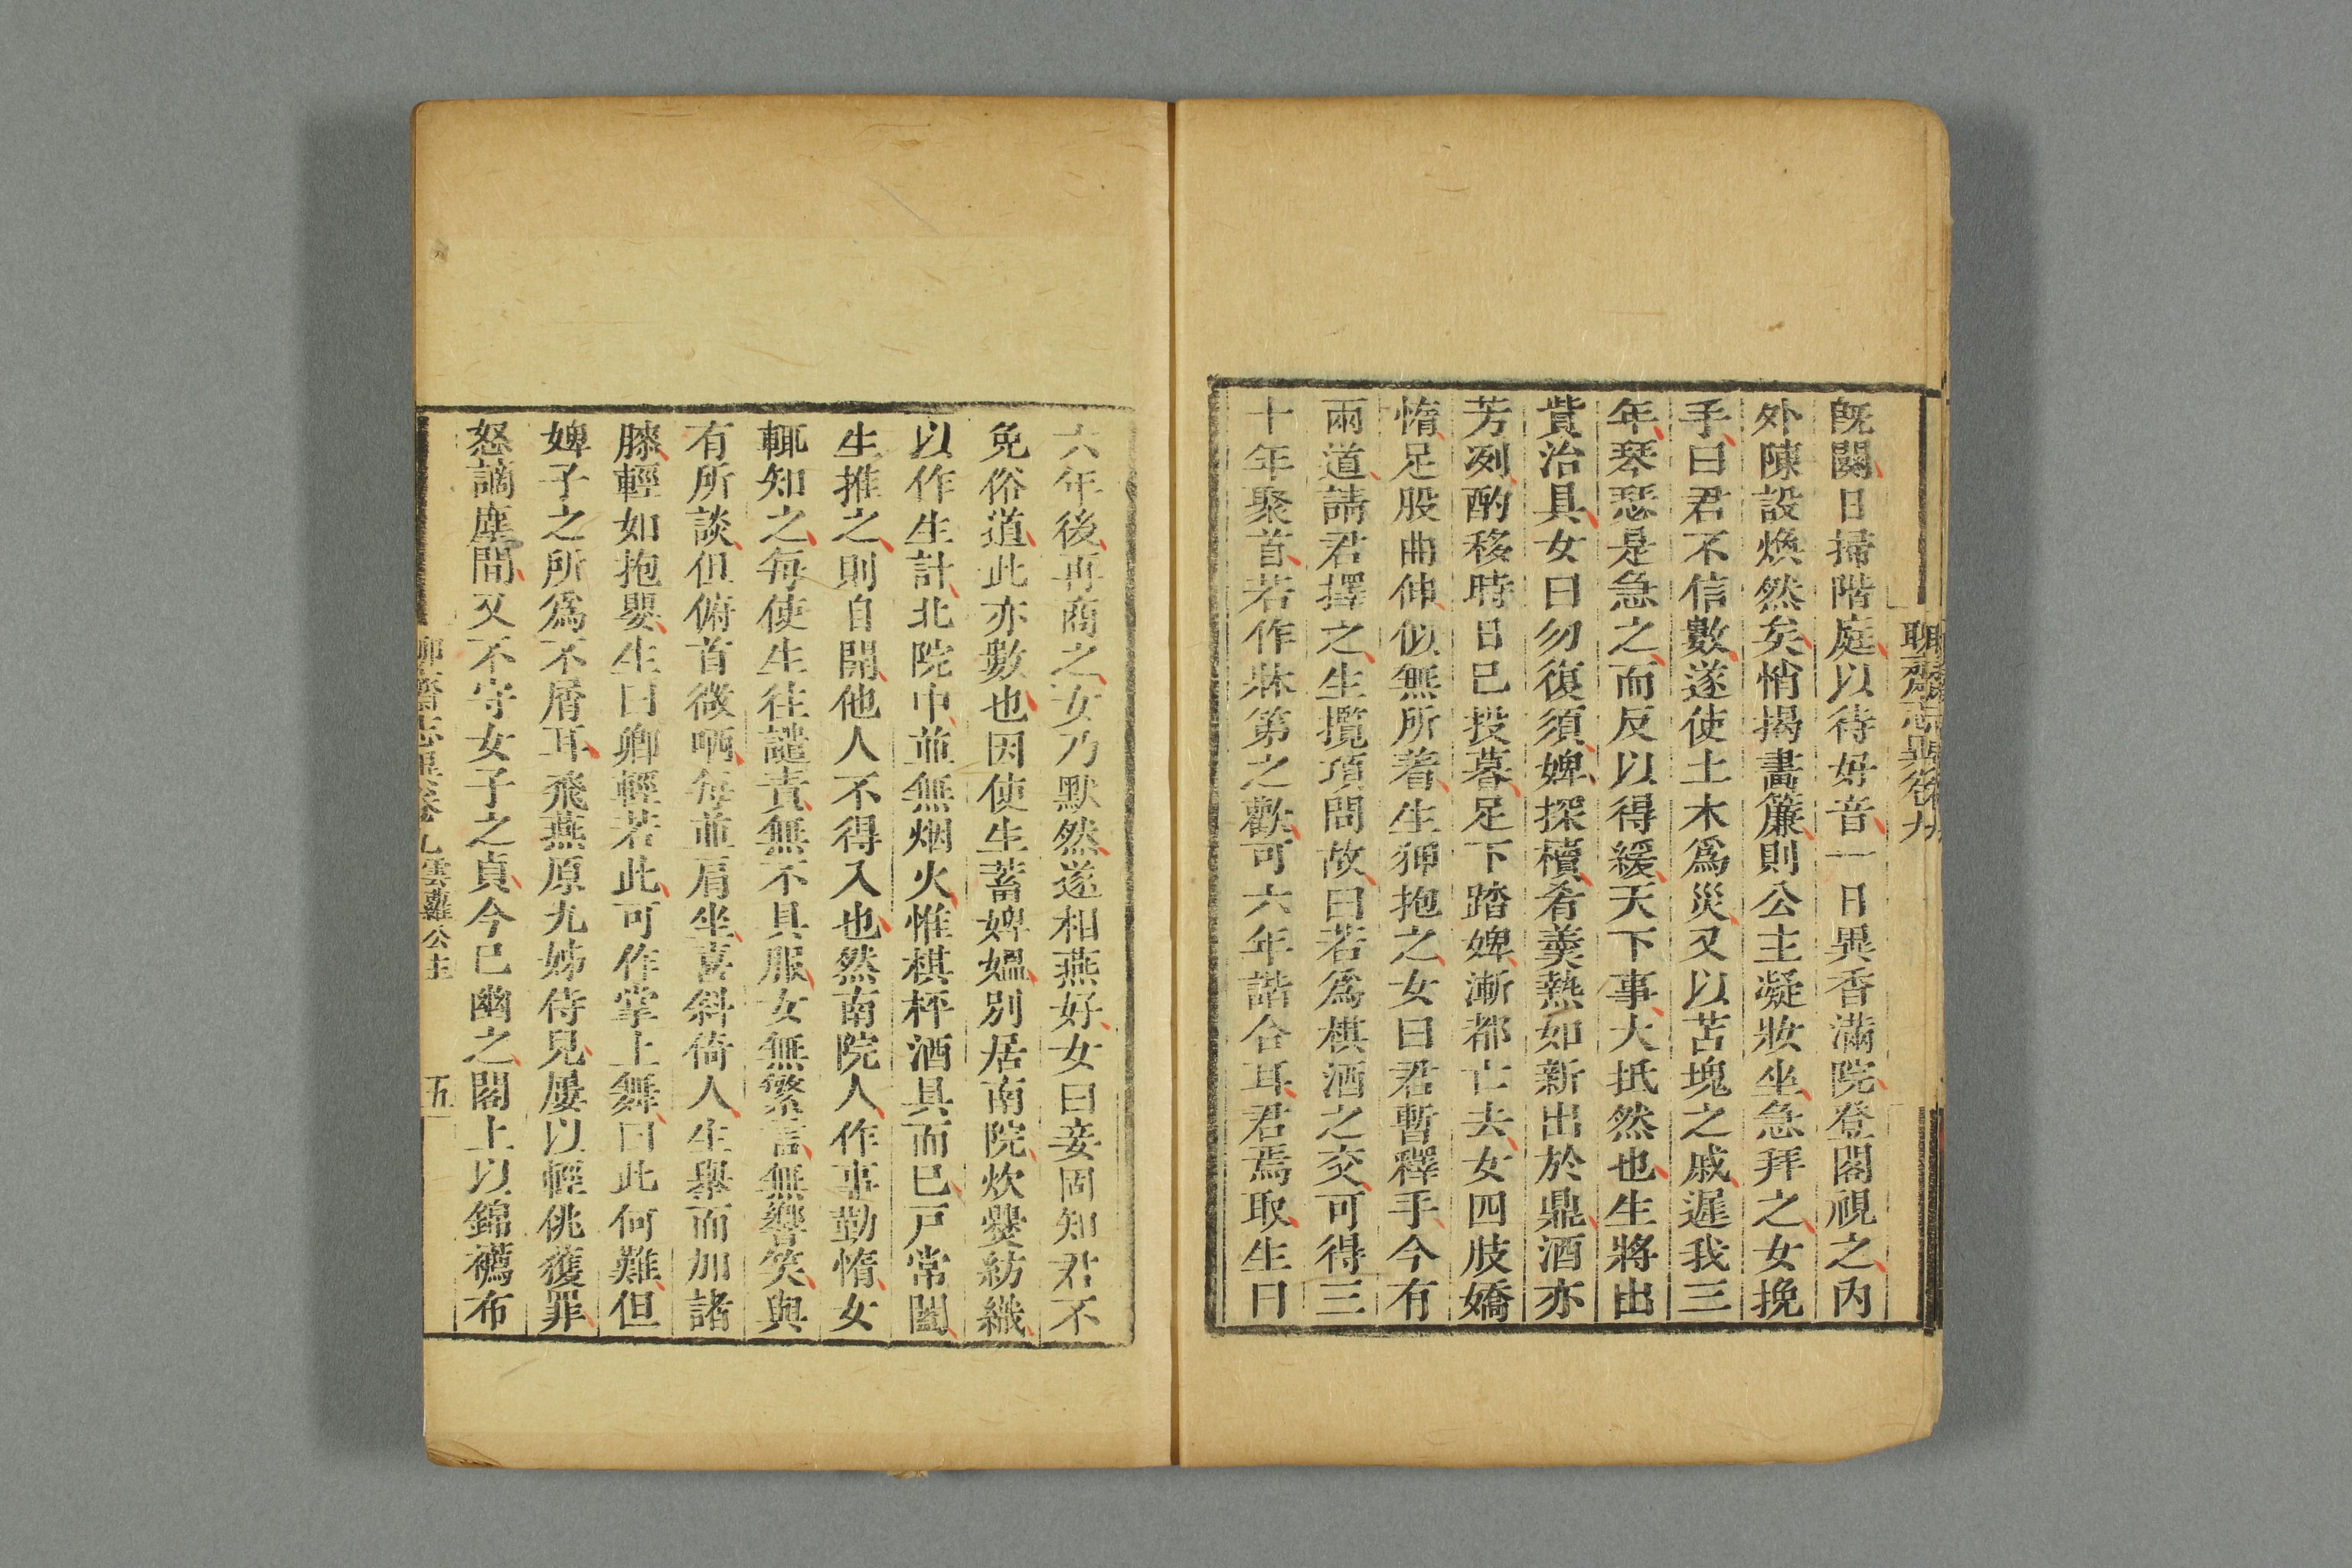 聊齋志異卷九
既闋日掃階庭以待好音一日異香滿院登閣視之內
外陳設煥然矣悄揭畫簾則公主凝妝坐急拜之女挽
手曰君不信數遂使土木爲災又以苫塊之戚遲我三
年琴瑟是急之而反以得緩天下事大抵然也生將出
貲治具女曰勿復須婢探櫝肴羹熱如新出於鼎酒亦
芳冽酌移時日已投暮足下踏婢漸都亡去女四肢嬌
惰足股曲伸似無所着生狎抱之女曰君暫釋手今有
兩道請君擇之生攬項問故曰若爲棋酒之交可得三
十年聚首若作牀第之歡可六年諧合耳君焉取生曰
六年後再商之女乃默然遂相燕好女曰妾固知君不
免俗道此亦數也因使生蓄婢媼別居南院炊爨紡織
以作生計北院中並無烟火惟棋枰酒具而已戸常闔
生推之則自開他人不得入也然南院人作事勤惰女
輒知之每使生往譴責無不具服女無繁言無響笑與
有所談但俯首微哂每並肩坐喜斜倚人生舉而加諸
膝輕如抱嬰生曰卿輕若此可作掌上舞曰此何難但
婢子之所爲不屑耳飛燕原九姊侍兒屢以輕佻獲罪
怒謫塵間又不守女子之貞今已幽之閣上以錦䙝布
聊齋志異卷九雲蘿公主
五